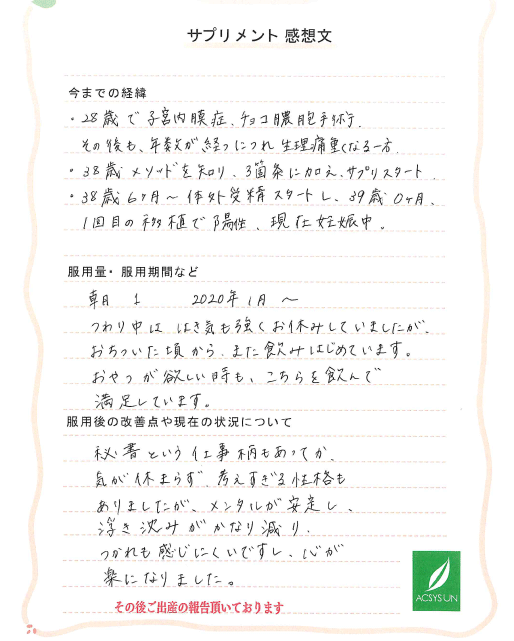 サプリメント 感想文
今までの経緯
・28歳で子宮内膜症、チョコ膿胞手術。
その後も、年数が経つにつれ生理痛重くなる一方。
・38歳 メソッドを知り、3箇条に加え、サプリスタート。
・38歳6ヶ月〜体外受精スタートし、39歳0ヶ月、
1回目の移植で陽性、現在妊娠中。
服用量・服用期間など
朝 1 2020年1月〜
つわり中は はき気も強くお休みしていましたが、
おちついた頃から、また飲みはじめています。
おやつが欲しい時も、こちらを飲んで
満足しています。
服用後の改善点や現在の状況について
秘書という仕事柄もあってか、
気が休まらず、考えすぎる性格も
ありましたが、メンタルが安定し、
浮き沈みがかなり減り、
つかれも感じにくいですし、心が
楽になりました。
その後ご出産の報告頂いております
ACSYSUN